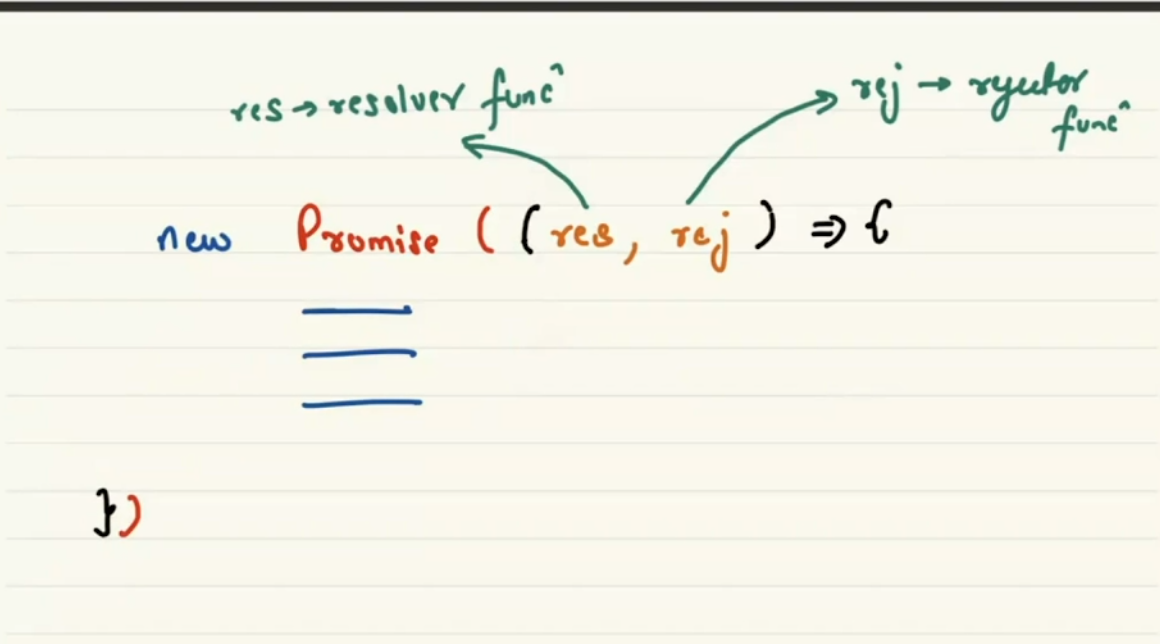 res → resolver funcⁿ
rej → rejector
funcⁿ
new Promise ( ( res, rej ) => {
})